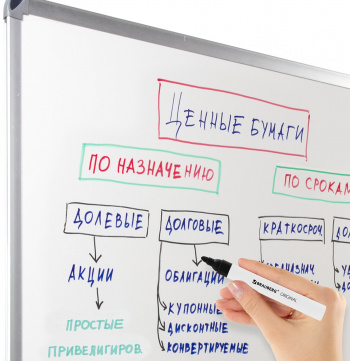 ЦЕННЫЕ БУМАГИ
ПО НАЗНАЧЕНИЮ
ПО СРОКАМ
ДОЛЕВЫЕ
ДОЛГОВЫЕ
КРАТКОСРОЧ
АКЦИИ
ОБЛИГАЦИ
ПРОСТЫЕ
ПРИВЕЛИГИРОВ
КУПОННЫЕ
ДИСКОНТНЫЕ
КОНВЕРТИРУЕМЫЕ
BRAUBERG ORIGINAL